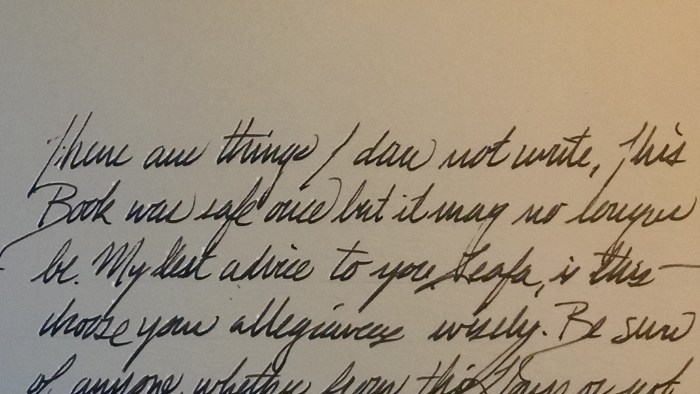 There are things I dare not write, This
Book was safe once but it may no longer
be. My best advice to you, Leafa, is this—
choose your allegiances wisely. Be sure
of anyone, whether from this or not